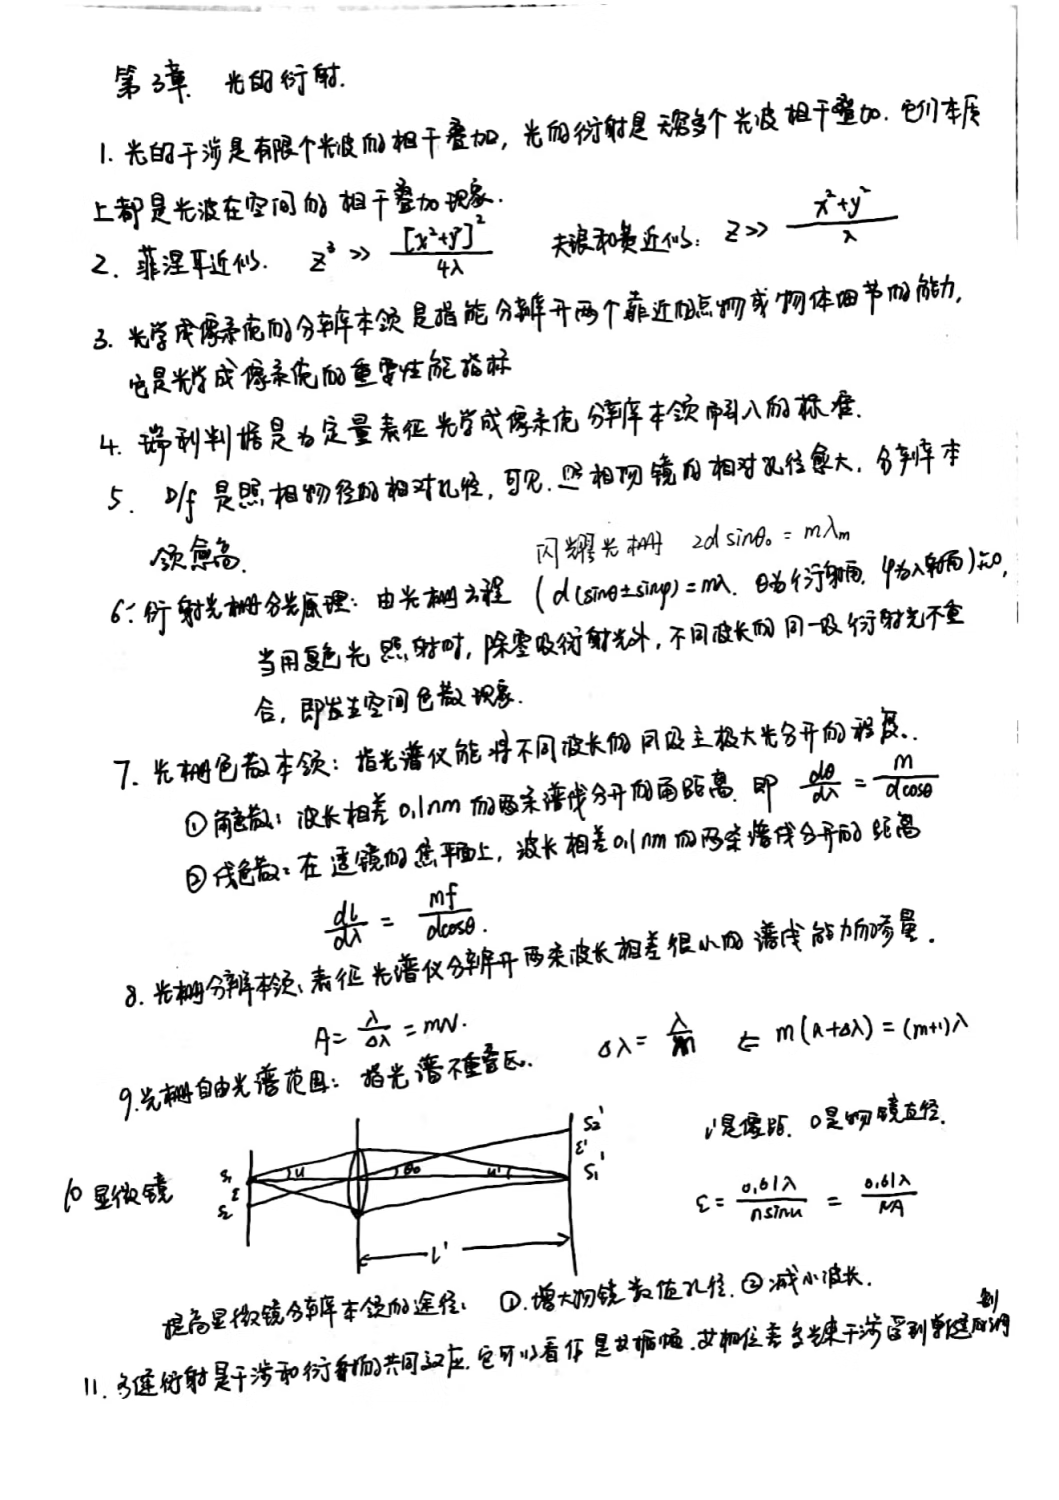 第3章 光的衍射.
1. 光的干涉是有限个光波的相干叠加, 光的衍射是无穷多个光波相干叠加. 它们本质
上都是光波在空间的相干叠加现象.
2. 菲涅耳近似. z³ >> [x²+y²]²/4λ 夫琅和费近似: z >> x²+y²/λ
3. 光学成像系统的分辨本领是指能分辨开两个靠近的点物或物体细节的能力,
它是光学成像系统的重要性能指标
4. 瑞利判据是为定量表征光学成像系统分辨本领而引入的标准.
5. D/f 是照相物径的相对孔径, 可见. 照相物镜的相对孔径愈大, 分辨率本
领愈高.
闪耀光栅 2d sinθ₀ = mλm
6: 衍射光栅分光原理: 由光栅方程 (d(sinθ±sinφ)=mλ. θ为衍射角. φ为入射角)可知,
当用复色光照射时, 除零级衍射光外, 不同波长的同一级衍射光不重
合, 即发生空间色散现象.
7. 光栅色散本领: 指光谱仪能将不同波长的同级主极大光分开的程度.
① 角色散: 波长相差0.1nm的两条谱线分开的角距离. 即 dθ/dλ = m/dcosθ
② 线色散: 在透镜的焦平面上, 波长相差0.1nm的两条谱线分开的距离
dl/dλ = mf/dcosθ.
8. 光栅分辨本领: 表征光谱仪分辨开两条波长相差很小的谱线能力的参量.
A = λ/Δλ = mN. Δλ = λ/m ⇐ m(λ+Δλ) = (m+1)λ
9. 光栅自由光谱范围: 指光谱不重叠区.
l'是像距. D是物镜直径.
10 显微镜 S₁ ε S₂ u θ₀ u' S₂' ε' S₁' l'
ε = 0.61λ/nsinu = 0.61λ/NA
提高显微镜分辨率本领的途径: ①. 增大物镜数值孔径. ② 减小波长.
11. 多缝衍射是干涉和衍射的共同效应. 它可以看作是等振幅. 等相位差多光束干涉受到单缝衍射调制